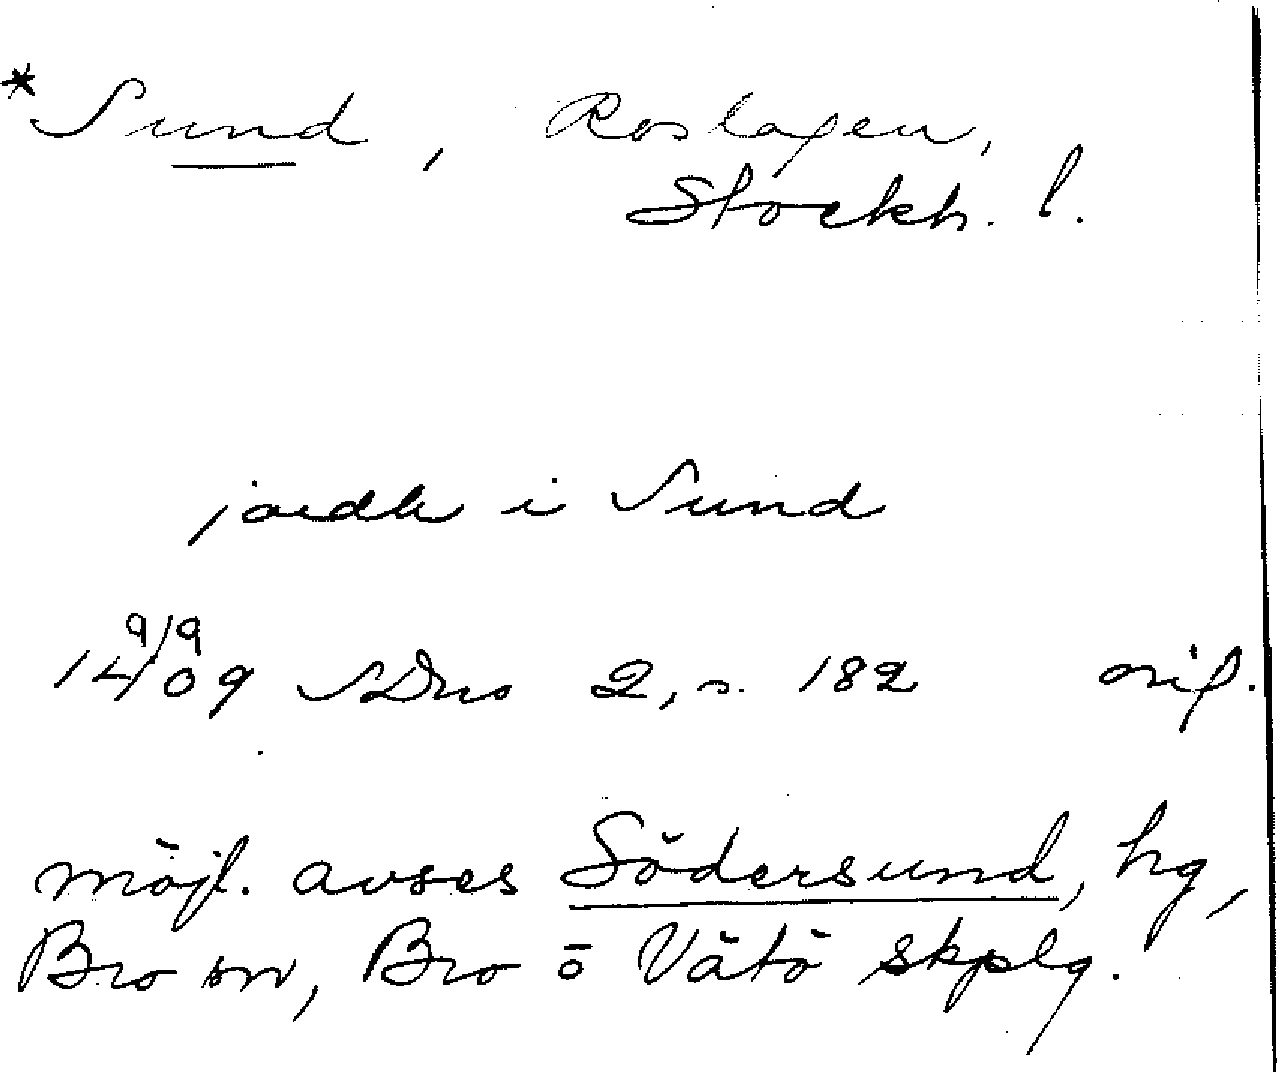 *Sund, Roslagen,
Stockh. l.
jordh i Sund
9/9
1409 SDns 2, s. 182 orig.
möjl. avses Södersund, hg,
Bro sn, Bro o Vätö skplg.